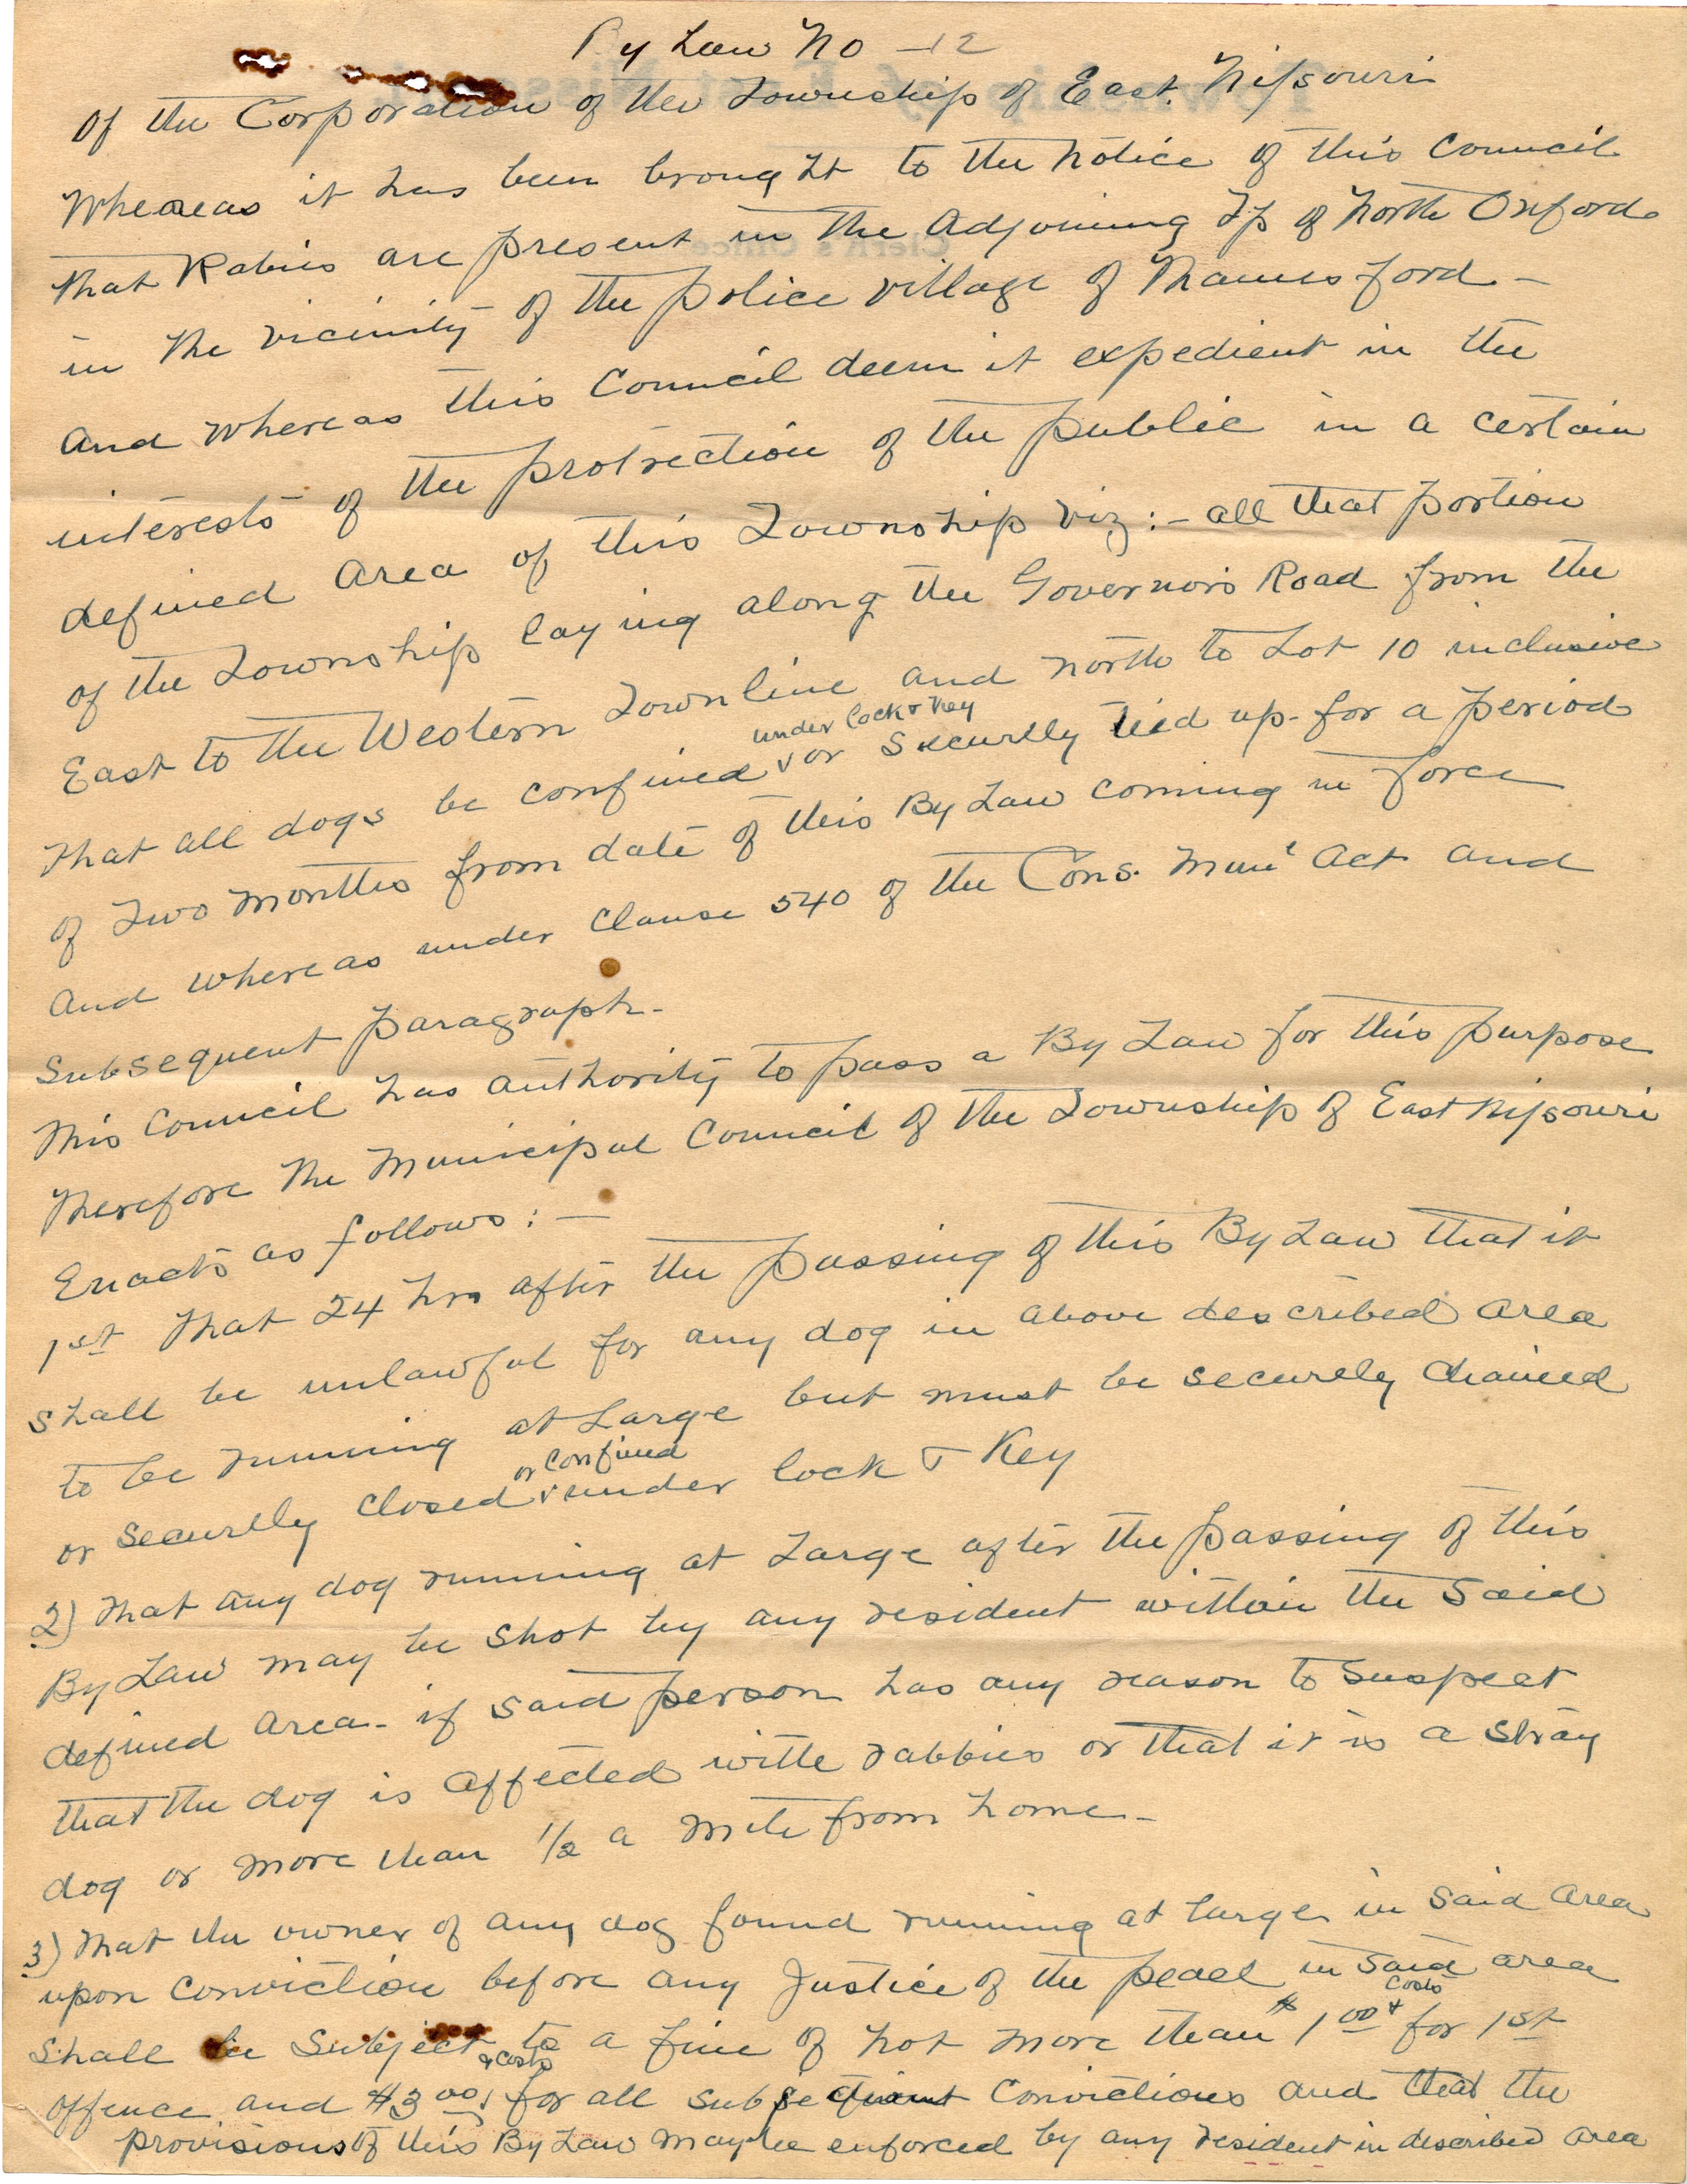 By Law No - 12
Of the Corporation of the Township of East Nissouri
Whereas it has been brought to the notice of this Council
that Rabies are present in the Adjoining Tp of North Oxford
in the vicinity of the police village of Thamesford -
And whereas this Council deem it expedient in the
interests of the protection of the public in a certain
defined area of this Township viz:- all that portion
of the Township laying along the Governors Road from the
East to the Western Townline and north to Lot 10 inclusive
under lock & Key
That all dogs be confined v or securely tied up for a period
of Two Months from date of this By Law coming in force
And whereas under Clause 540 of the Cons. Munl Act and
Subsequent paragraph -
This Council has authority to pass a By Law for this purpose
Therefore The Municipal Council of the Township of East Nissouri
Enacts as follows:-
1st That 24 hrs after the passing of this By Law that it
shall be unlawful for any dog in above described area
to be running at Large but must be securely chained
or confined
or securely closed v under lock & Key
2) That any dog running at Large after the passing of this
By Law may be shot by any resident within the said
defined area - if said person has any reason to suspect
that the dog is affected with rabbies or that it is a stray
dog or more than 1/2 a mile from home -
3) That the owner of any dog found running at large in said area
upon conviction before any Justice of the peace in said area
Costs
shall be Subject to a fine of not more than $1.00 + for 1st
& Costs
offence and $3.00 for all subsequent convictions and that the
provisions of this By Law may be enforced by any resident in described area